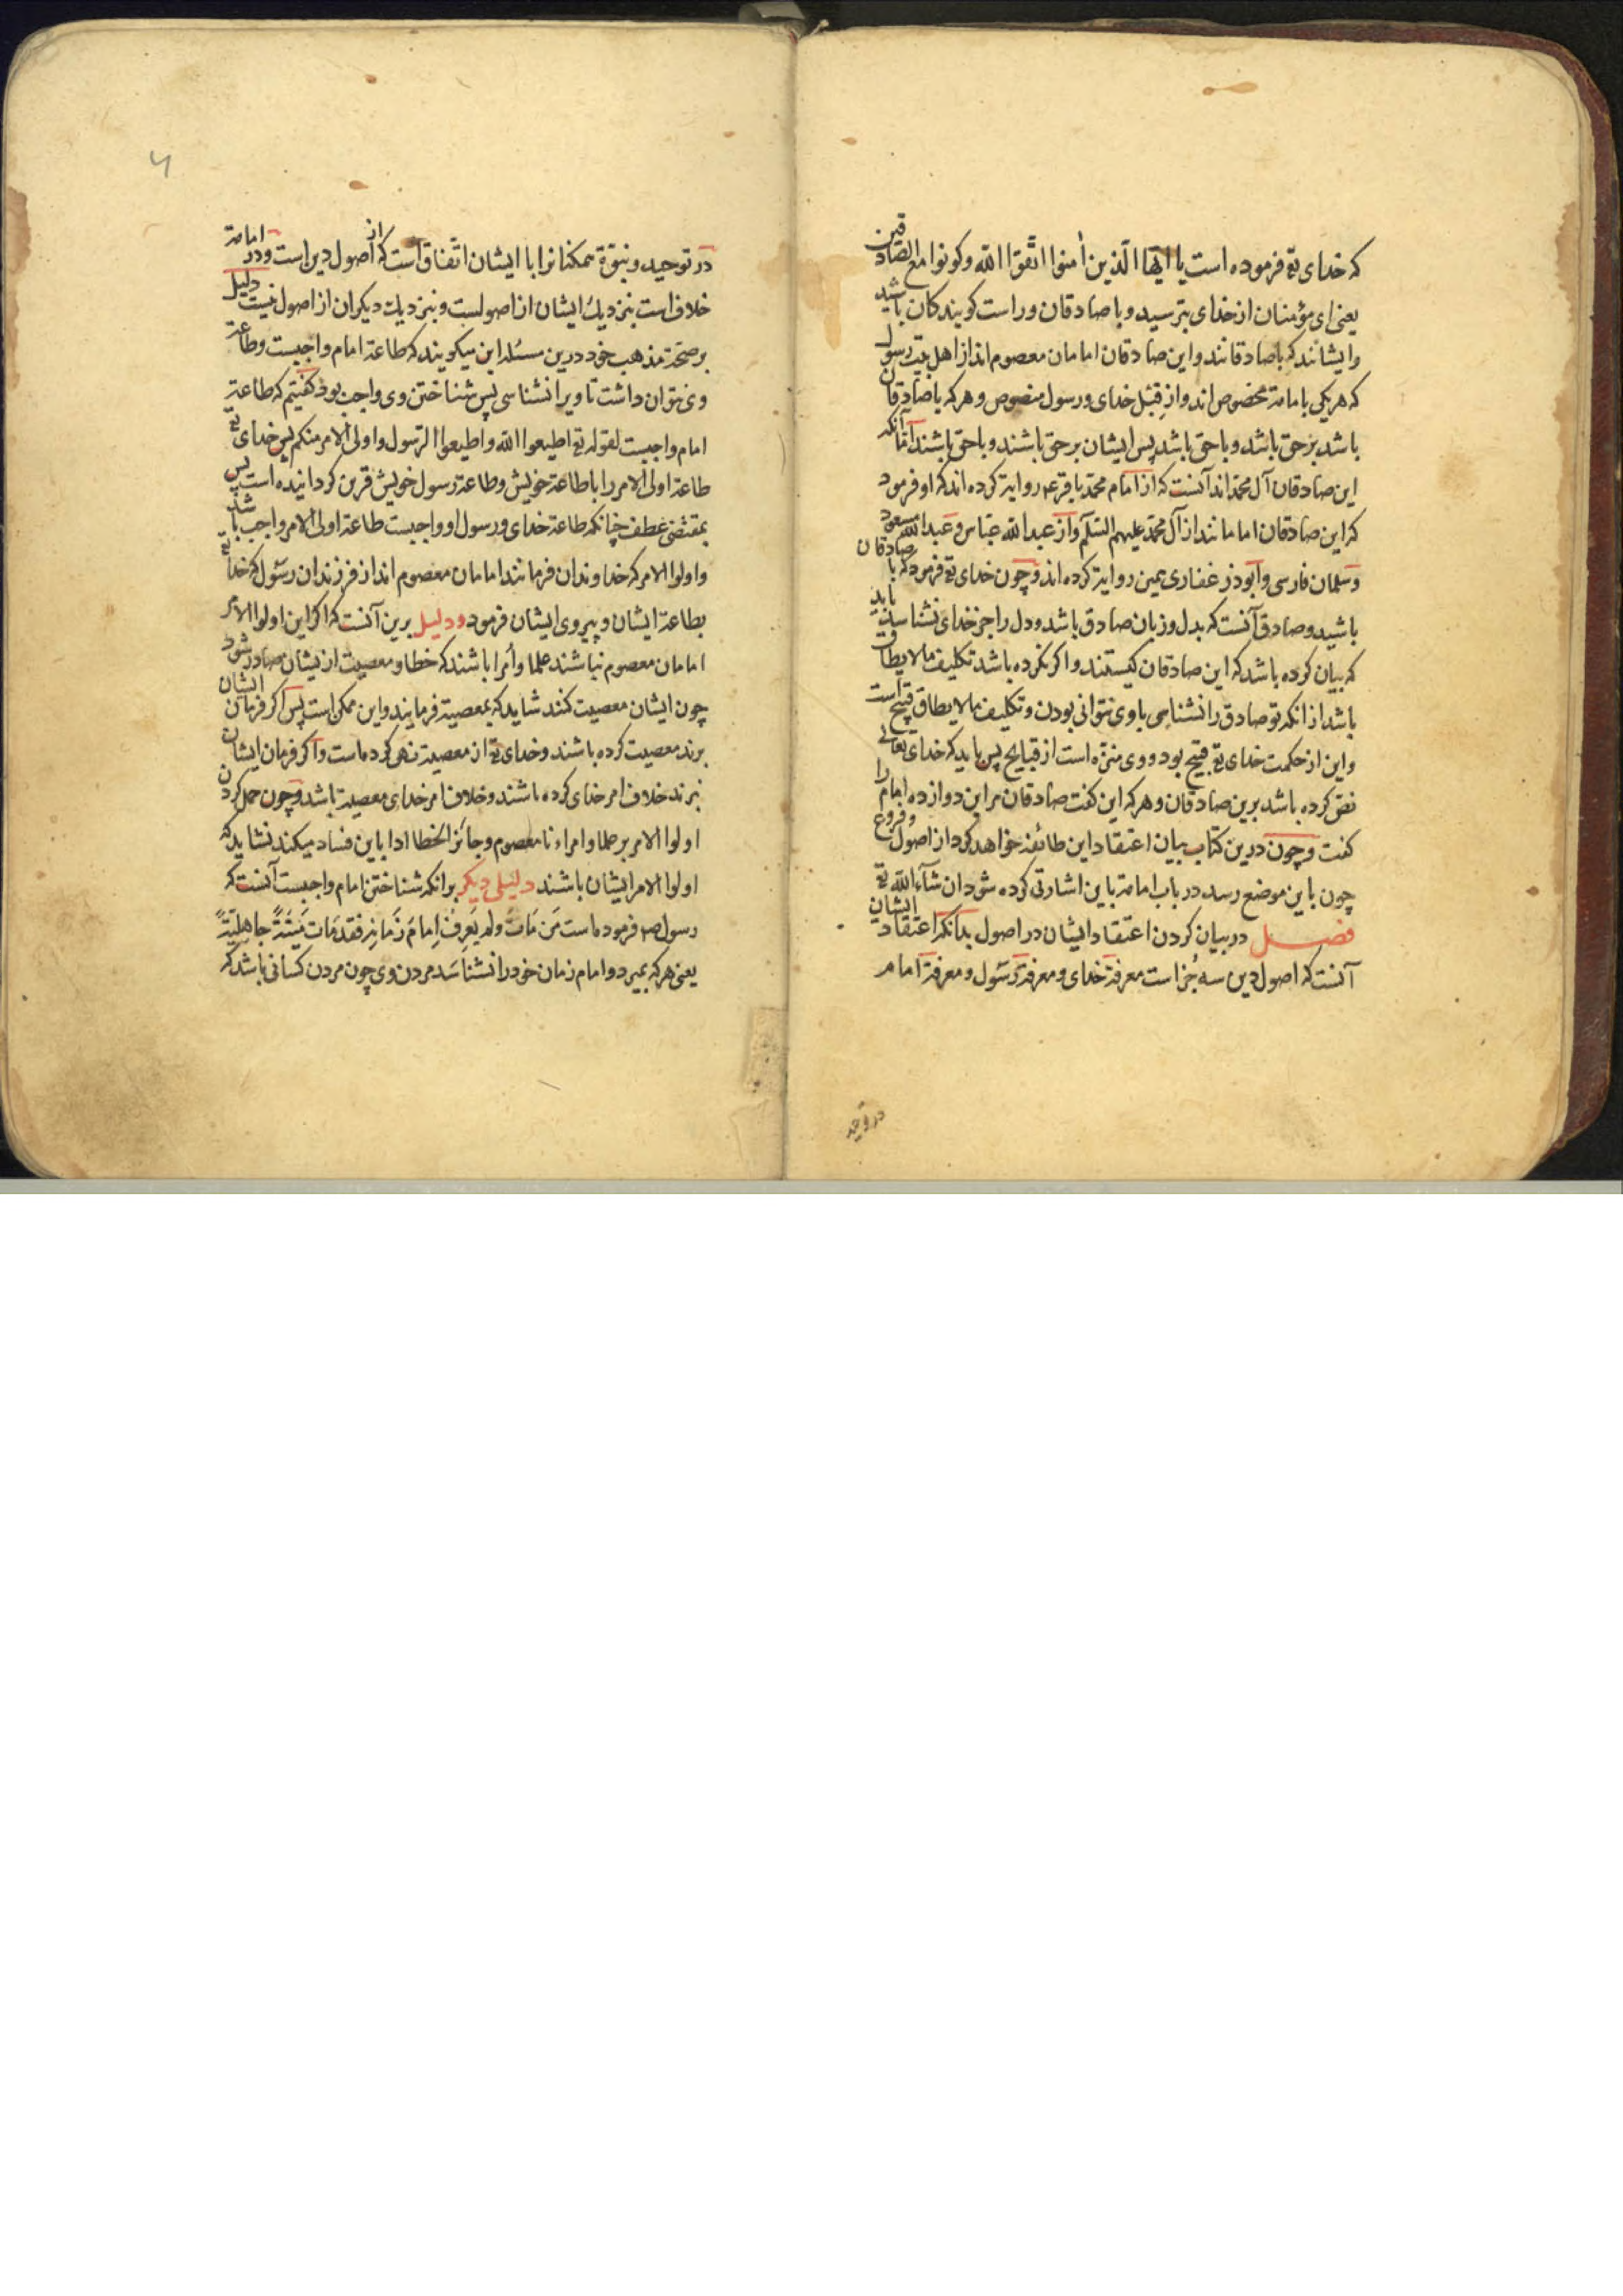 که خدای تع فرموده است یا ایّها الّذین اٰمنوا اتّقوا اللّه وکونوا مع الصّادقین
یعنی ای مؤمنان از خدای بترسید و با صادقان و راست کویندکان باشید
وایشانند که با صادقانند واین صادقان امامان معصوم اند از اهل بیت رسول
که هریکی بامامة مخصوص اند واز قبل خدای ورسول منصوص وهرکه با صادقان
باشد برحق باشد وباحق باشد پس ایشان برحق باشند وباحق باشند امّا آنکه
این صادقان آل محمّد اند آنست که از امام محمّد باقر ع روایة کرده اند که او فرمود
که این صادقان امامانند از آل محمّد علیهم السّلم واز عبد اللّه عبّاس وعبد اللّه مسعود
وسلمان فارسی وابوذر غفاری همین روایة کرده اند وچون خدای تع فرمود که با صادقان
باشید وصادق آنست که بدل وزبان صادق باشد ودل را جز خدای نشناسد باید
که بیان کرده باشد که این صادقان کیستند واکر نکرده باشد تکلیف مالایطاق
باشد از انکه تو صادق را نشناسی باوی نتوانی بودن وتکلیف مالایطاق قبیح است
واین از حکمت خدای تع قبیح بود ووی منزّه است از قبایح پس باید که خدای تعالی
نصّ کرده باشد برین صادقان وهرکه این کفت صادقان مر این دوازده امام را
کفت وچون درین کتاب بیان اعتقاد این طائفه خواهد کرد از اصول وفروع
چون باین موضع رسد در باب امامة باین اشارتی کرده شود ان شآء اللّه تع
فصل در بیان کردن اعتقاد ایشان در اصول بدانکه اعتقاد ایشان
آنست که اصول دین سه جز است معرفة خدای ومعرفة رسول ومعرفة امام
در توحید
در توحید ونبوّة همکنانرا با ایشان اتّفاق است که از اصول دین است ودر امامة
خلاف است بنزدیك ایشان از اصولست وبنزدیك دیکران از اصول نیست دلیل
بر صحّة مذهب خود درین مسئله این میکویند که طاعة امام واجبست وطاعة
وی نتوان داشت تا ویرا نشناسی پس شناختن وی واجب بود کفتیم که طاعة
امام واجبست لقوله تع اطیعوا اللّه واطیعوا الرّسول واولی الامر منکم پس خدای تع
طاعة اولی الامر را باطاعة خویش وطاعة رسول خویش قرین کردانیده است پس
بمقتضی عطف چنانکه طاعة خدای ورسول او واجبست طاعة اولی الامر واجب باشد
واولوا الامر که خداوندان فرمانند امامان معصوم اند از فرزندان رسول که خدای تع
بطاعة ایشان وپیروی ایشان فرمود ودلیل برین آنست که اکر این اولوا الامر
امامان معصوم نباشند علما واُمرا باشند که خطا ومعصیت ازیشان صادر شود
چون ایشان معصیت کنند شاید که بمعصیة فرمایند واین ممکن است پس اکر فرمان ایشان
برند معصیت کرده باشند وخدای تع از معصیة نهی کرده است واکر فرمان ایشان
نبرند خلاف امر خدای کرده باشند وخلاف امر خدای معصیة باشد وچون حمل کردن
اولوا الامر بر علما وامراء نا معصوم وجائز الخطا ادا باین فساد میکند نشاید که
اولوا الامر ایشان باشند دلیلی دیکر برانکه شناختن امام واجبست آنست که
رسول ص فرموده است مَن مَاتَ ولم یَعرِف اِمامَ زَمانِه فقد مَات مَیتَةً جاهِلیّةً
یعنی هرکه بمیرد وامام زمان خود را نشناسد مردن وی چون مردن کسانی باشد که